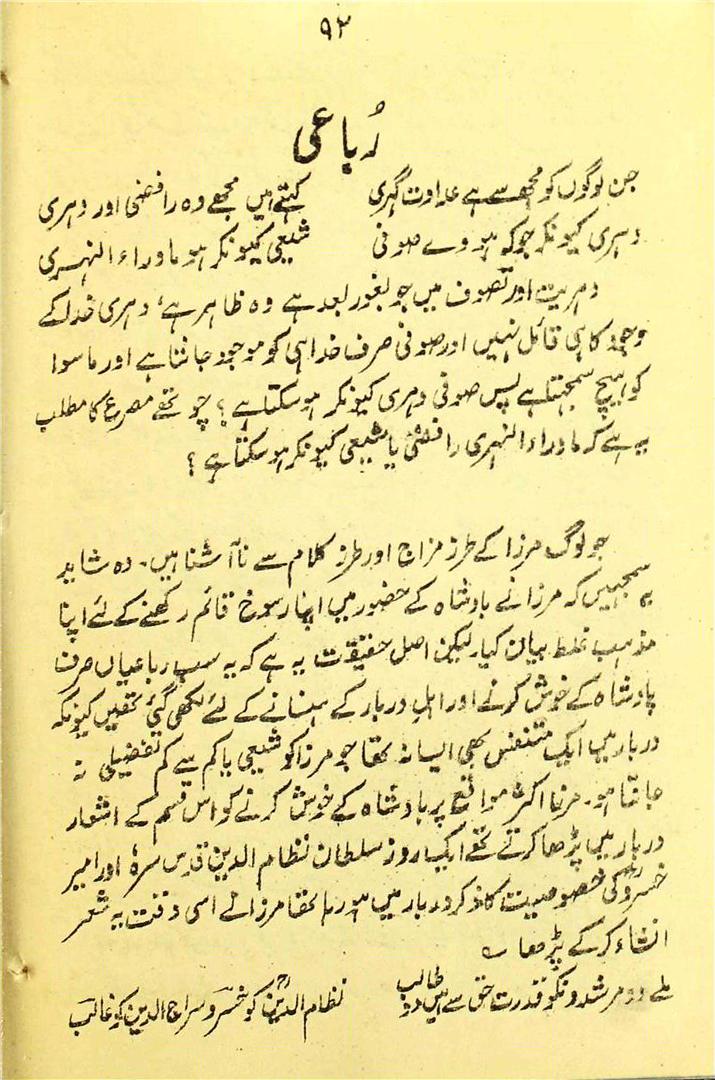 ۹۲
رُباعی
جن لوگوں کو مجھ سے ہے عداوت گہری کہتے ہیں مجھے وہ رافضی اور دہری
دہری کیونکر جو کہ ہووے صوفی شیعی کیونکر ہو ماوراء النہری
دہریت اور تصوف میں جو بغور بعد ہے وہ ظاہر ہے، دہری خدا کے
وجود کا ہی قائل نہیں اور صوفی صرف خدا ہی کو موجود جانتا ہے اور ماسوا
کو ہیچ سمجہتا ہے پس صوفی دہری کیونکر ہو سکتا ہے؟ چوتھے مصرع کا مطلب
یہ ہے کہ ماوراء النہری رافضی یا شیعی کیونکر ہو سکتا ہے؟
جو لوگ مرزا کے طرز مزاج اور طرز کلام سے ناآشنا ہیں۔ وہ شاید
یہ سمجہیں کہ مرزا نے بادشاہ کے حضور میں اپنا رسوخ قائم رکھنے کے لئے اپنا
مذہب غلط بیان کیا، لیکن اصل حقیقت یہ ہے کہ یہ سب رباعیاں صرف
پادشاہ کے خوش کرنے اور اہل دربار کے ہنسانے کے لئے لکھی گئی تھیں کیونکہ
دربار میں ایک متنفس بھی ایسا نہ تھا جو مرزا کو شیعی یا کم سے کم تفضیلی نہ
جانتا ہو۔ مرزا اکثر مواقع پر بادشاہ کے خوش کرنے کو اس قسم کے اشعار
دربار میں پڑھا کرتے تھے ایک روز سلطان نظام الدین قدس سرہٗ اور امیر
خسروؒ کی خصوصیت کا ذکر دربار میں ہو رہا تھا مرزا نے اسی وقت یہ شعر
انشاء کر کے پڑھا ؎
ملے دو مرشدونکو قدرت حق سے ہیں دو طالب نظام الدینؒ کو خسرو سراج الدین کو غالب